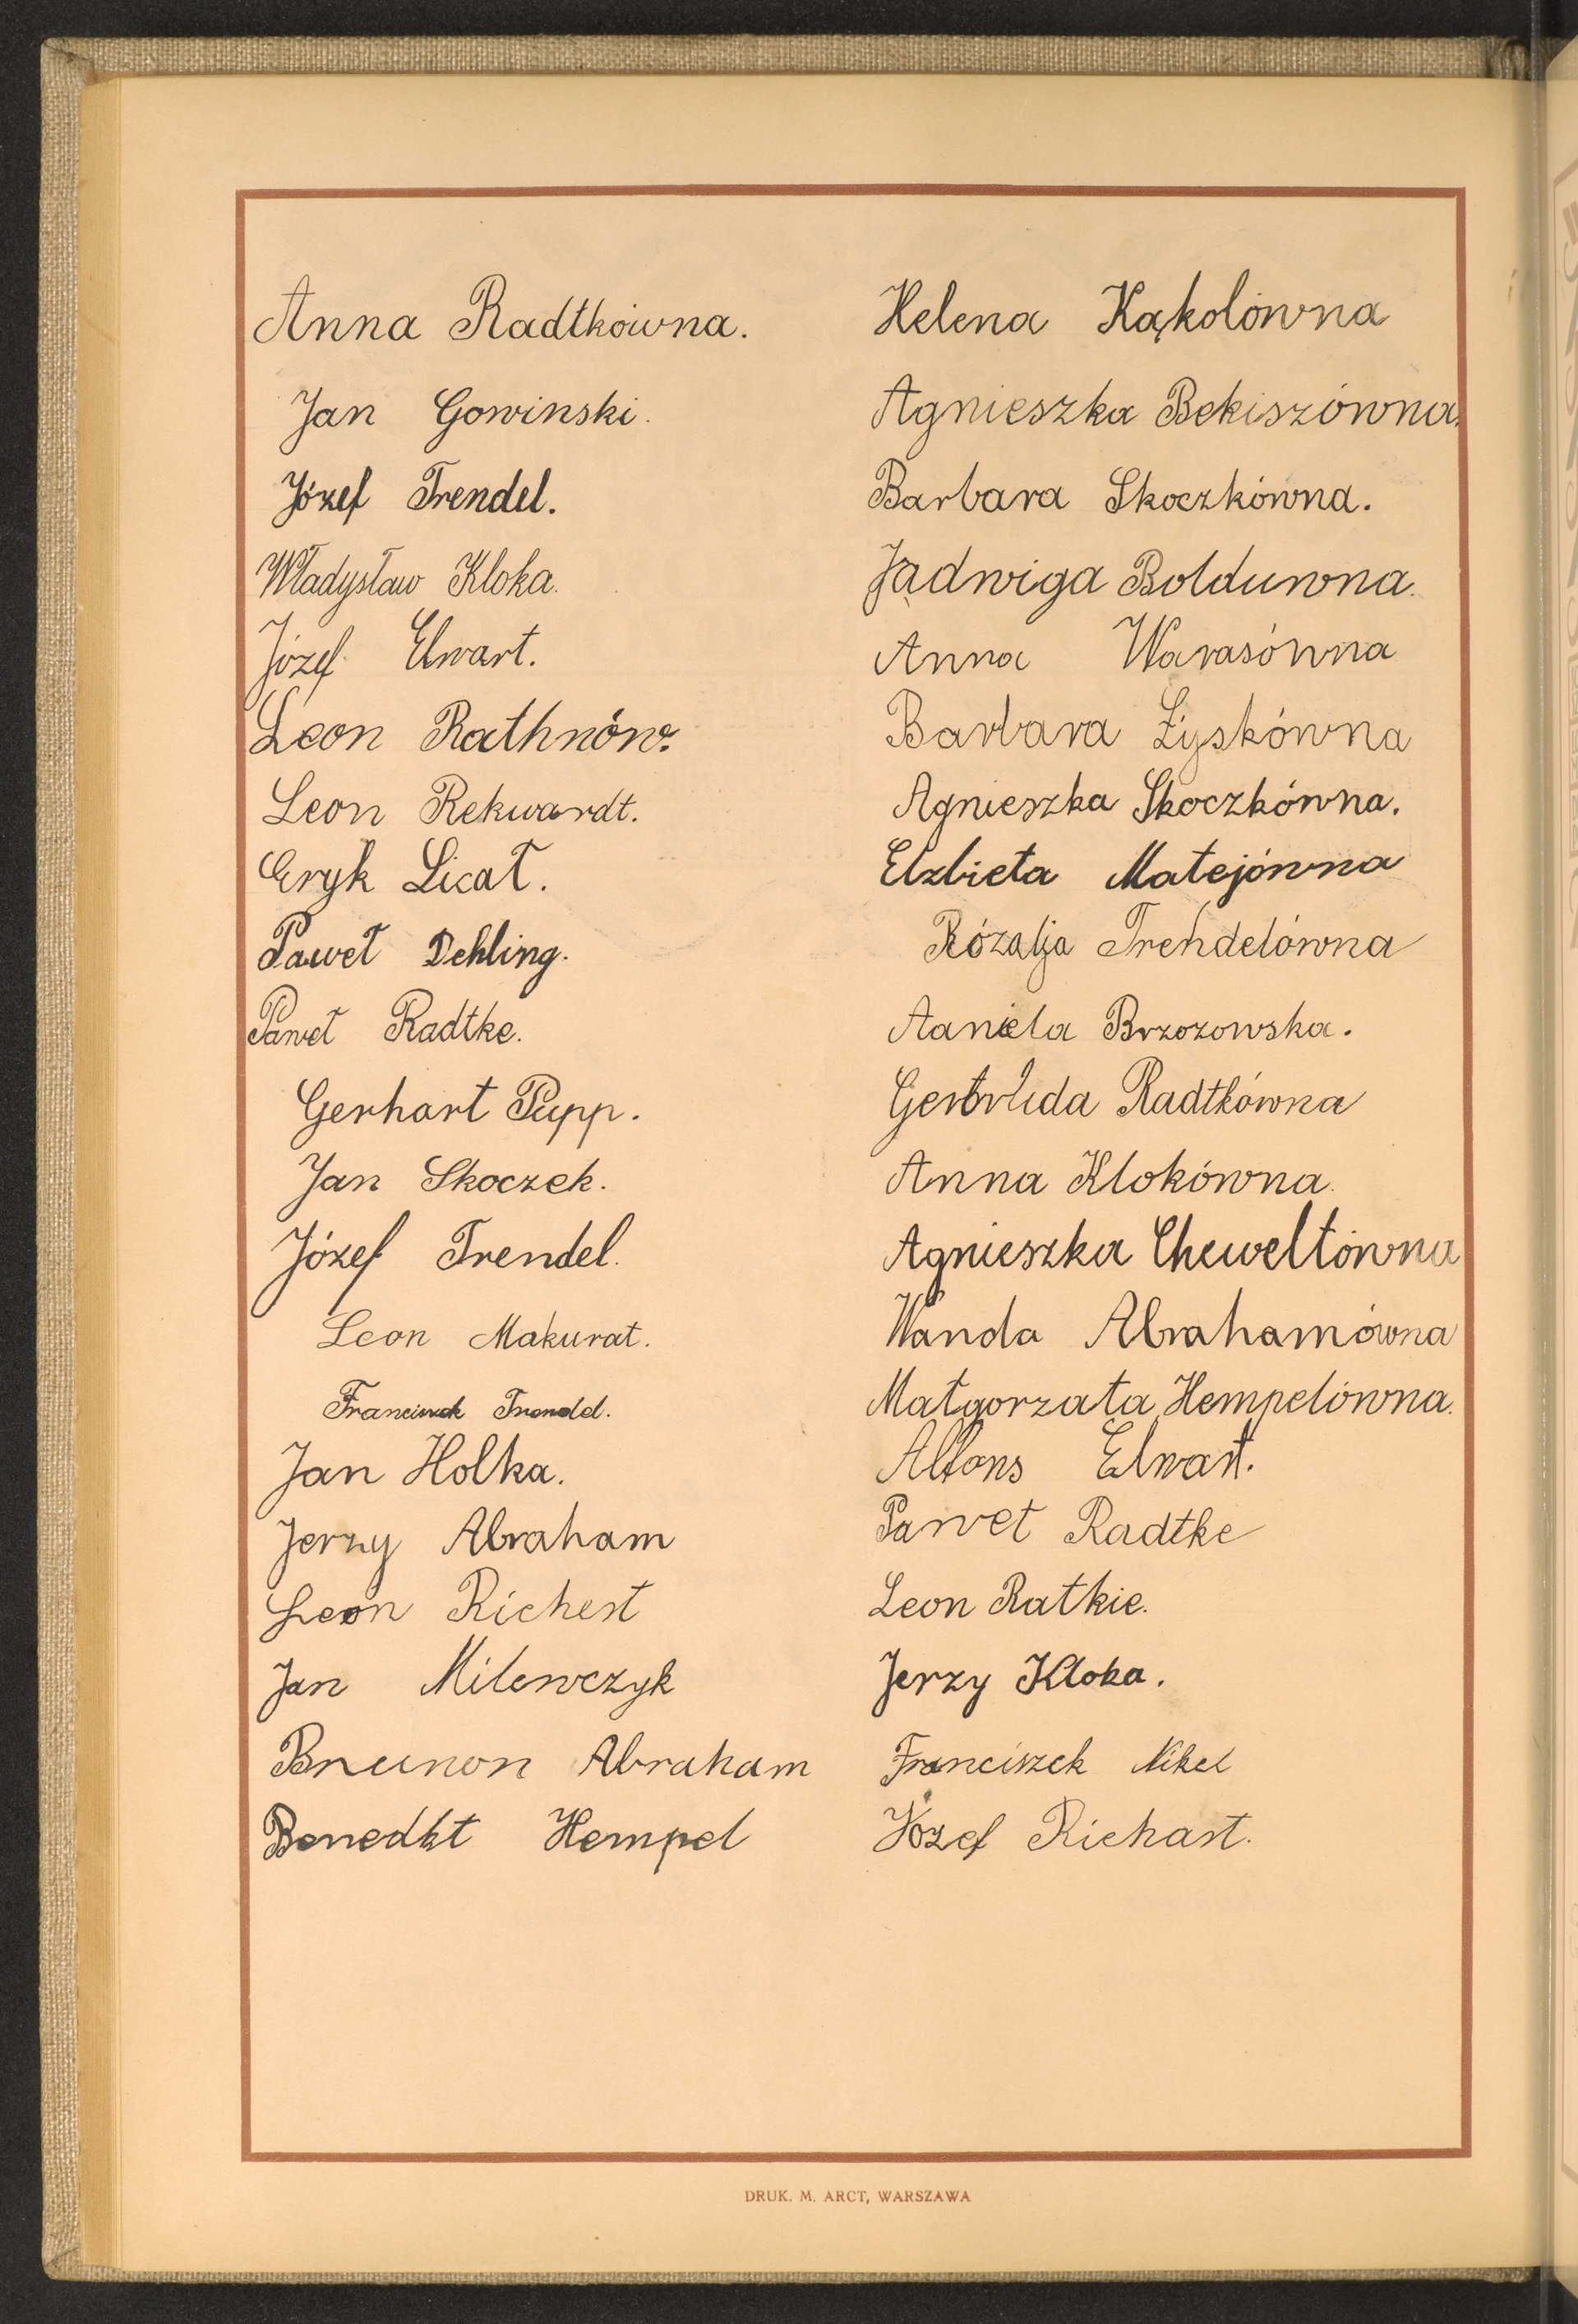 Anna Radtkówna.
Jan Gowinski.
Józef Trendel.
Władysław Kloka.
Józef Elwart.
Leon Rathnów.
Leon Rekwardt.
Eryk Licał.
Paweł Dehling.
Paweł Radtke.
Gerhart Pupp.
Jan Skoczek.
Józef Trendel.
Leon Makurat.
Franciszek Trendel.
Jan Holka.
Jerzy Abraham
Leon Richert
Jan Milewczyk
Brunon Abraham
Benedkt Hempel
Helena Kąkolówna
Agnieszka Bekiszówna.
Barbara Skoczkówna.
Jadwiga Bolduwna.
Anna Warasówna
Barbara Żyskówna
Agnieszka Skoczkówna.
Elzbieta Matejówna
Rózalja Trendelówna
Aaniela Brzozowska.
Gertruda Radtkówna
Anna Klokówna.
Agnieszka Cheweltówna
Wanda Abrahamówna
Małgorzata Hempelówna.
Alfons Elwart.
Paweł Radtke
Leon Ratkie.
Jerzy Kloka.
Franciszek Nikel
Józef Richart.
DRUK. M. ARCT, WARSZAWA